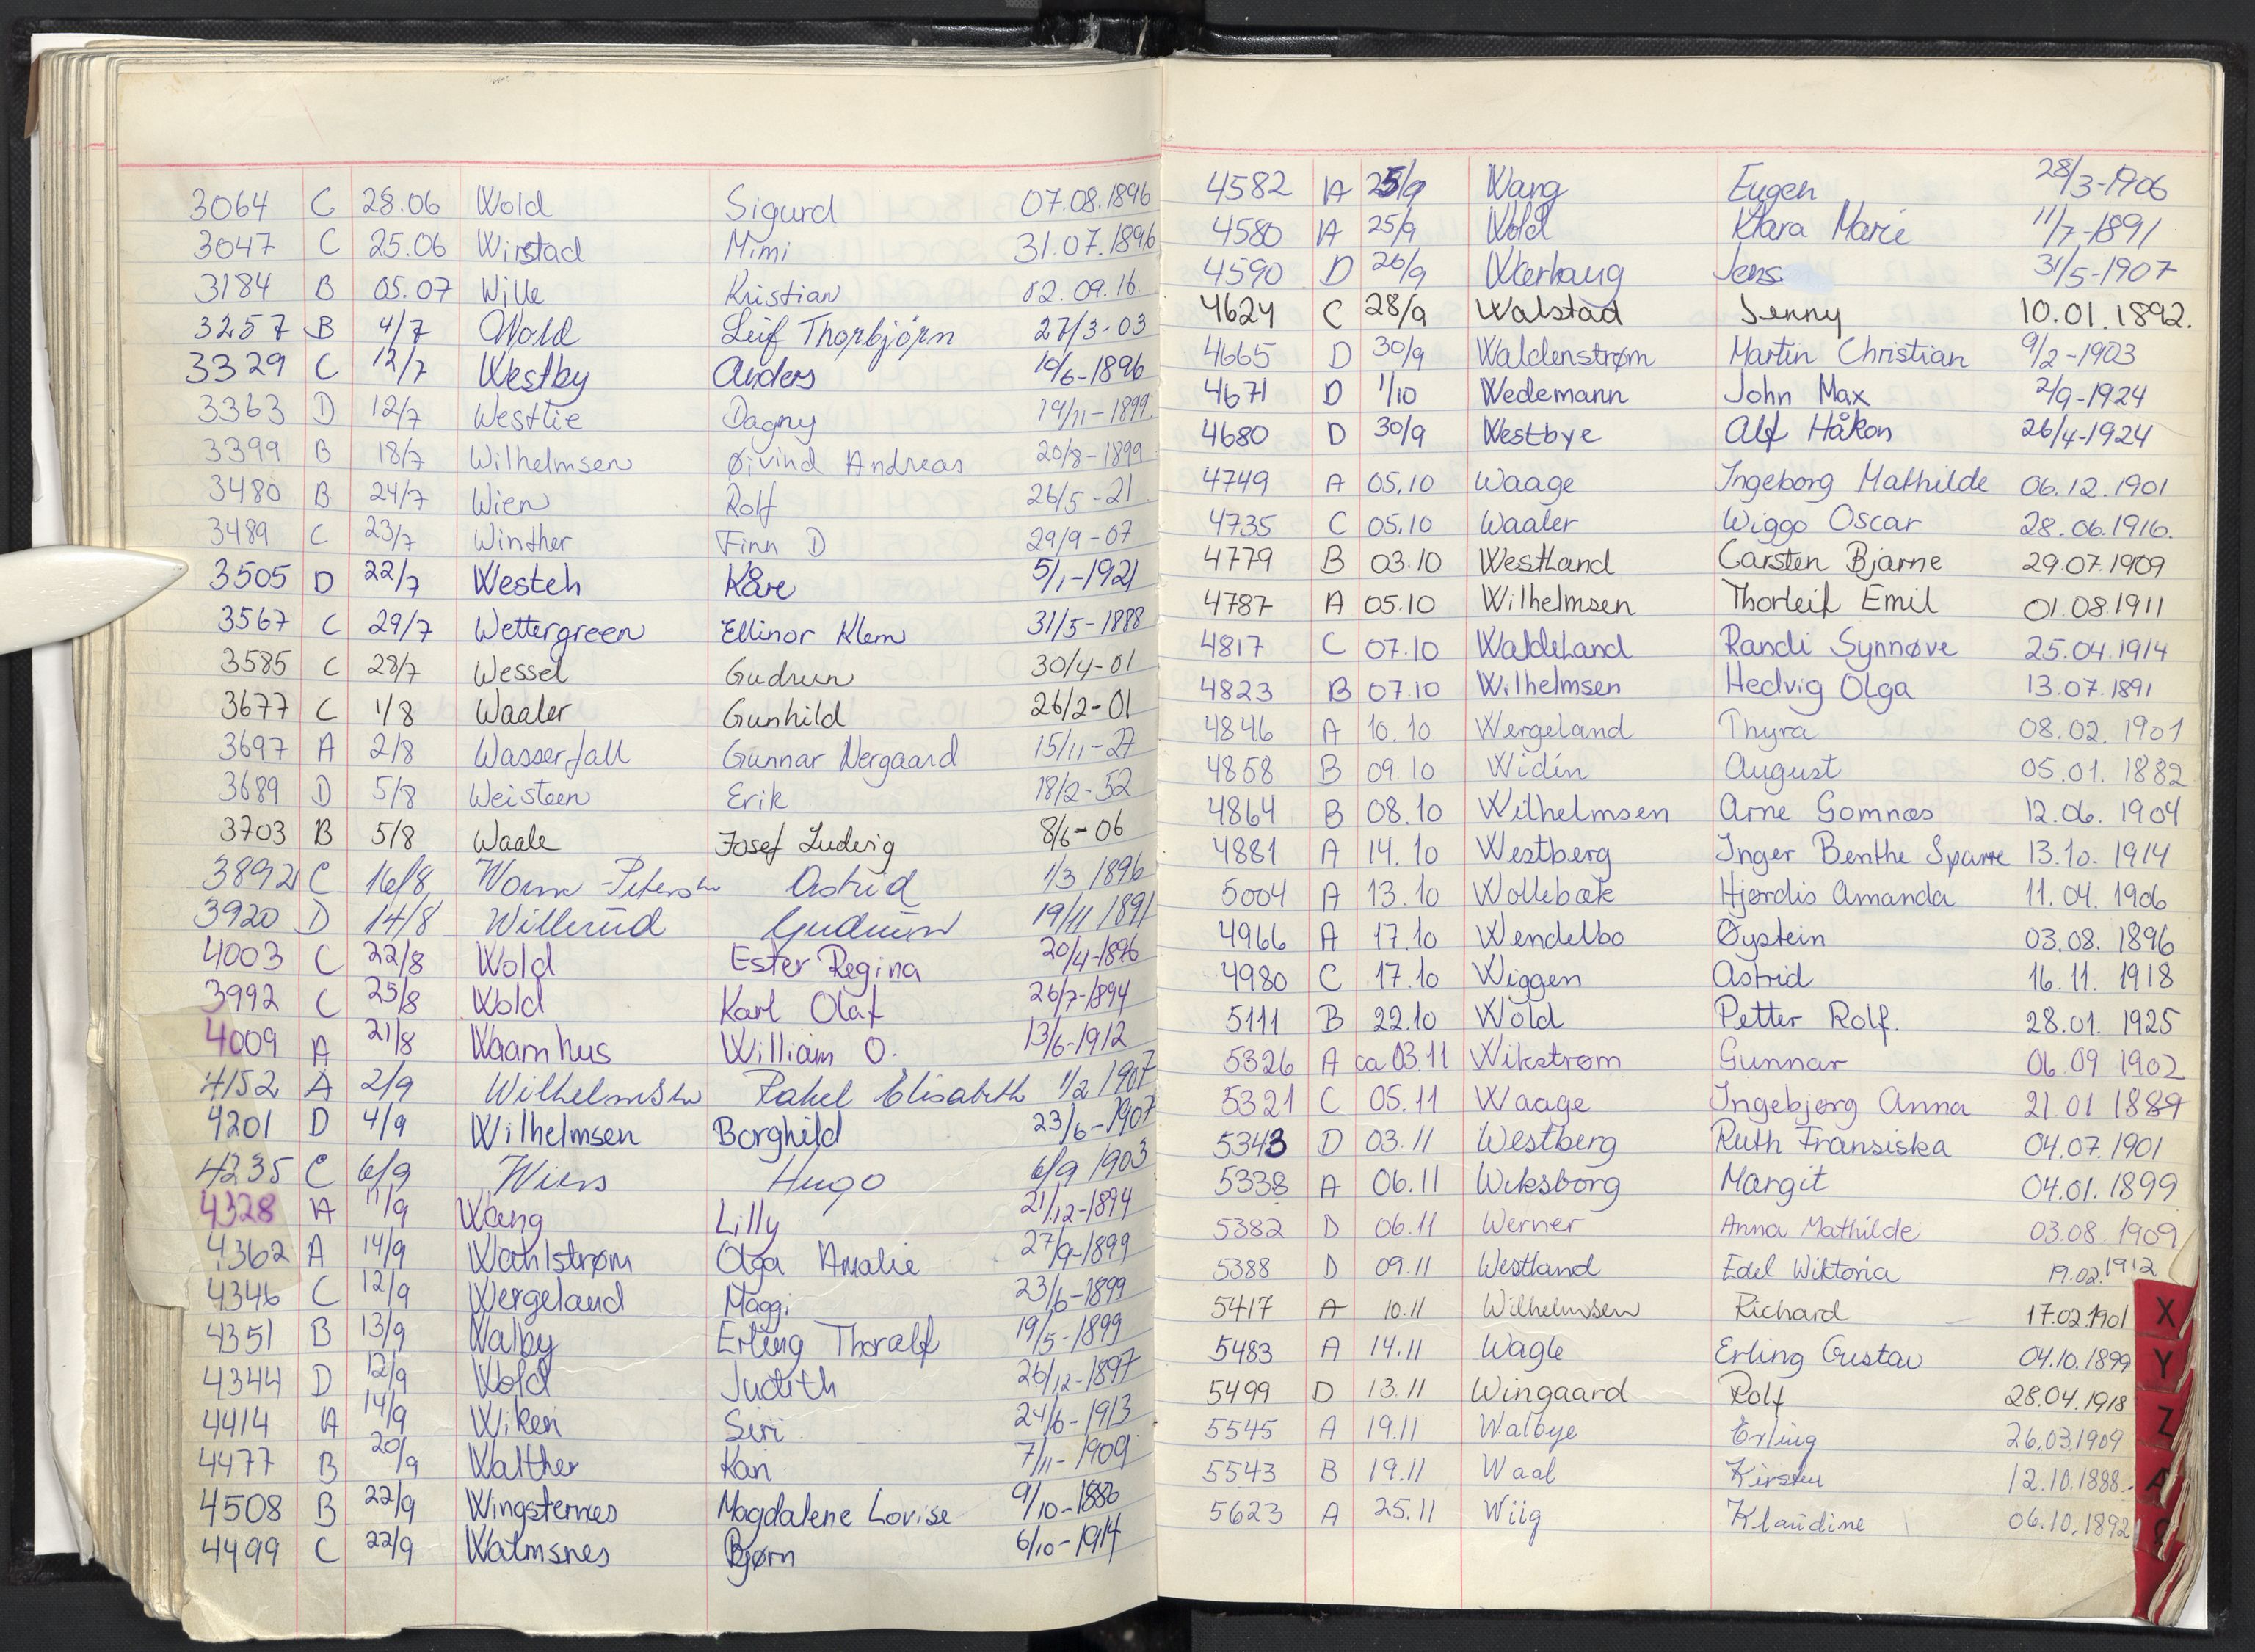 3064 C 28.06 Wold Sigurd 07.08.1896
3047 C 25.06 Wirstad Mimi 31.07.1896
3184 B 05.07 Wille Kristian 02.09.16.
3257 B 4/7 Wold Leif Thorbjörn 27/3-03
3329 C 12/7 Westby Anders 10/6-1896
3363 D 12/7 Westlie Dagny 19/11-1899.
3399 B 18/7 Wilhelmsen Øivind Andreas 20/8-1899
3480 B 24/7 Wien Rolf 26/5-21
3489 C 23/7 Winther Finn D 29/9-07
3505 D 22/7 Westeh Kåre 5/1-1921
3567 C 29/7 Wettergreen Ellinor Klem 31/5-1888
3585 C 28/7 Wessel Gudrun 30/4-01
3677 C 1/8 Waaler Gunhild 26/2-01
3697 A 2/8 Wasserfall Gunnar Nergaard 15/11-27
3689 D 5/8 Weisteen Erik 18/2-52
3703 B 5/8 Waale Josef Ludvig 8/6-06
3892 C 16/8 Worm-Petersen Astrid 1/3 1896
3920 D 14/8 Willerud Gudrun 19/11 1891
4003 C 22/8 Wold Ester Regina 20/4-1896
3992 C 25/8 Wold Karl Olaf 26/7-1894
4009 A 21/8 Waamhus William O. 13/6-1912
4152 A 2/9 Wilhelmsen Rakel Elisabeth 1/2 1907
4201 D 4/9 Wilhelmsen Borghild 23/6-1907
4235 C 6/9 Wiers Hugo 6/9 1903
4328 A 11/9 Wang Lilly 21/12-1894
4362 A 14/9 Wahlstrøm Olga Amalie 27/9-1899
4346 C 12/9 Wergeland Maggi 23/6-1899
4351 B 13/9 Walby Erling Thoralf 19/5-1899
4344 D 12/9 Wold Judith 26/12-1897
4414 A 14/9 Wiken Siri 24/6-1913
4477 B 20/9 Walther Kari 7/11-1909
4508 B 22/9 Wingsternes Magdalene Lovise 9/10-1886
4499 C 22/9 Walmsnes Bjørn 6/10-1914
4582 A 25/9 Wang Eugen 28/3-1906
4580 A 25/9 Wold Klara Marie 11/7-1891
4590 D 26/9 Wærhaug Jens 31/5-1907
4624 C 28/9 Walstad Jenny 10.01.1892.
4665 D 30/9 Waldenstrøm Martin Christian 9/2-1903
4671 D 1/10 Wedemann John Max 2/9-1924
4680 D 30/9 Westbye Alf Håkon 26/4-1924
4749 A 05.10 Waage Ingeborg Mathilde 06.12.1901
4735 C 05.10 Waaler Wiggo Oscar 28.06.1916.
4779 B 03.10 Westland Carsten Bjarne 29.07.1909
4787 A 05.10 Wilhelmsen Thorleif Emil 01.08.1911
4817 C 07.10 Waldeland Randi Synnøve 25.04.1914
4823 B 07.10 Wilhelmsen Hedvig Olga 13.07.1891
4846 A 10.10 Wergeland Thyra 08.02.1901
4858 B 09.10 Widin August 05.01.1882
4864 B 08.10 Wilhelmsen Arne Gomnæs 12.06.1904
4881 A 14.10 Westberg Inger Benthe Sparre 13.10.1914
5004 A 13.10 Wollebæk Hjørdis Amanda 11.04.1906
4966 A 17.10 Wendelbo Øystein 03.08.1896
4980 C 17.10 Wiggen Astrid 16.11.1918
5111 B 22.10 Wold Petter Rolf. 28.01.1925
5326 A ca 03.11 Wikstrøm Gunnar 06.09 1902
5321 C 05.11 Waage Ingebjørg Anna 21.01 1889
5343 D 03.11 Westberg Ruth Fransiska 04.07.1901
5338 A 06.11 Wiksborg Margit 04.01.1899
5382 D 06.11 Werner Anna Mathilde 03.08.1909
5388 D 09.11 Westland Edel Wiktoria 19.02.1912
5417 A 10.11 Wilhelmsen Richard 17.02.1901
5483 A 14.11 Wagle Erling Gustav 04.10.1899
5499 D 13.11 Wingaard Rolf 28.04.1918
5545 A 19.11 Walbye Erling 26.03.1909
5543 B 19.11 Waal Kirsten 12.10.1888
5623 A 25.11 Wiig Klaudine 06.10.1892
X
Y
Z